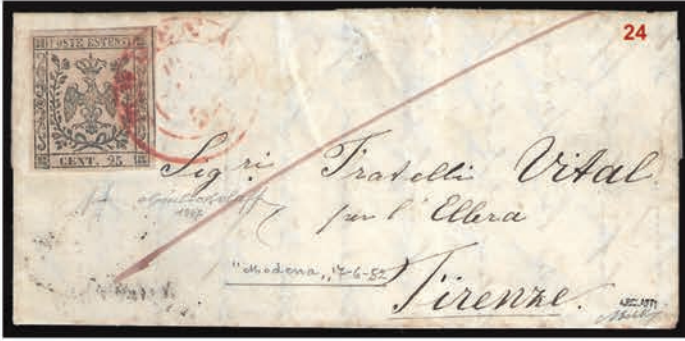 24
POSTE ESTENSI
CENT. 25
Sig.ri Fratelli Vital
per l'Ellera
"Modena" 17-6-52
Firenze.